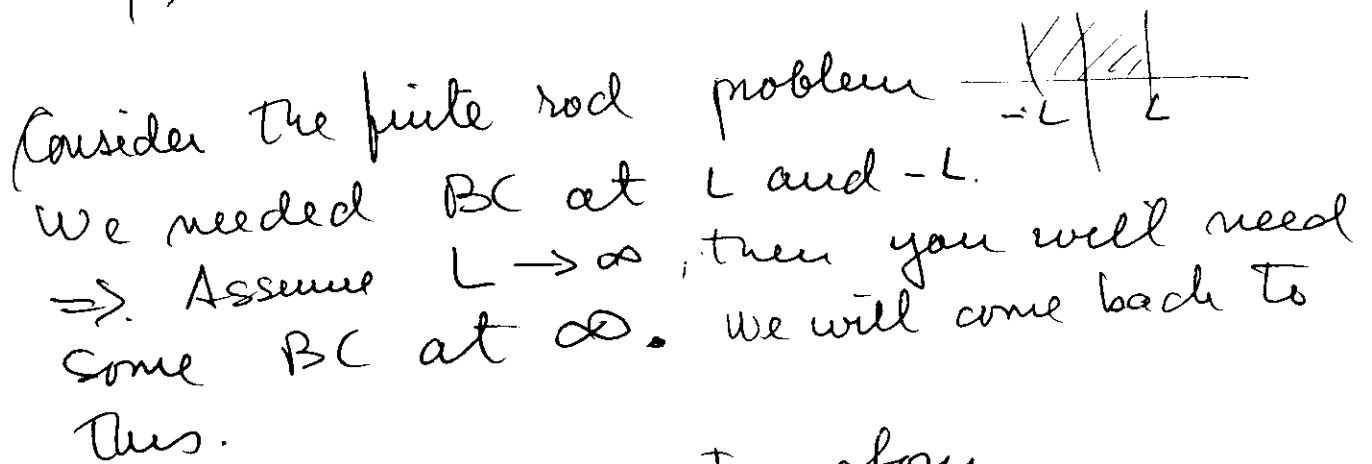 Consider the finite rod problem
-L L
We needed BC at L and -L.
=>. Assume L → ∞, then you will need
some BC at ∞. We will come back to
this.